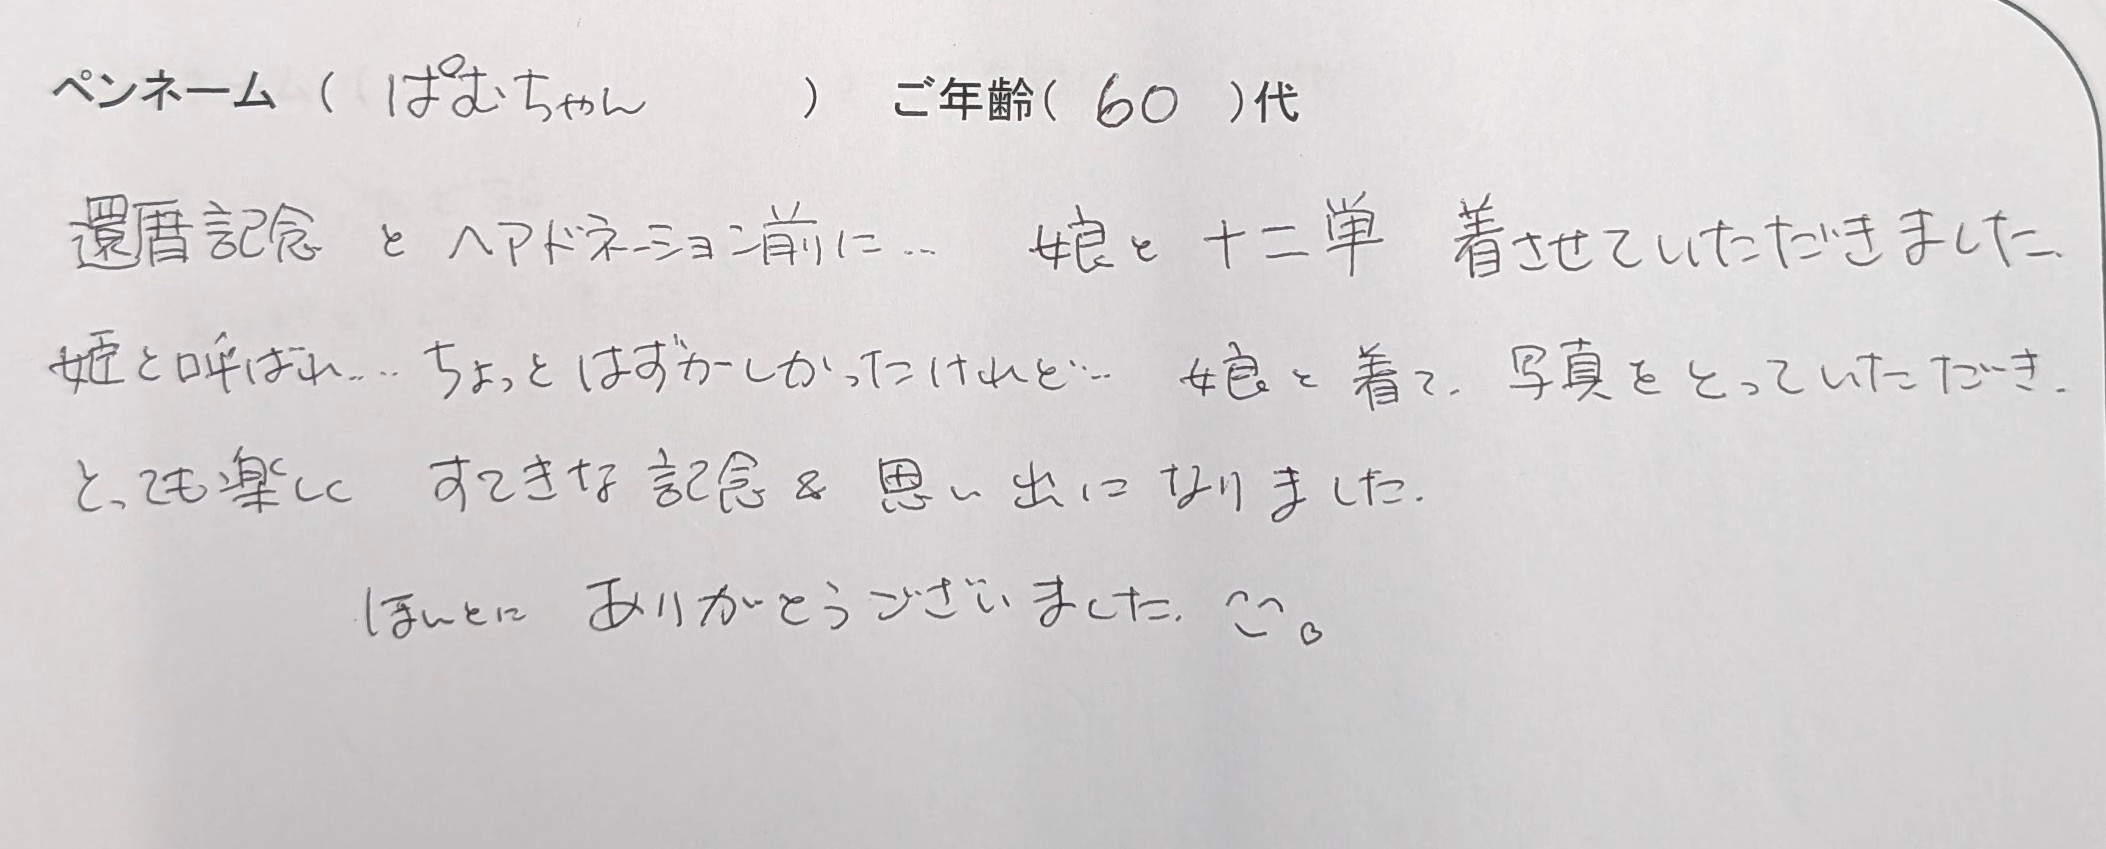 ペンネーム ( ぱむちゃん ) ご年齢( 60 )代
還暦記念 と ヘアドネーション前に… 娘と 十二単 着させていただきました.
姫と呼ばれ…. ちょっと はずかーしかったけれど… 娘と 着て. 写真をとっていただき.
とっても楽しく すてきな 記念 & 思い出に なりました.
ほんとに ありがとうございました. ^^。